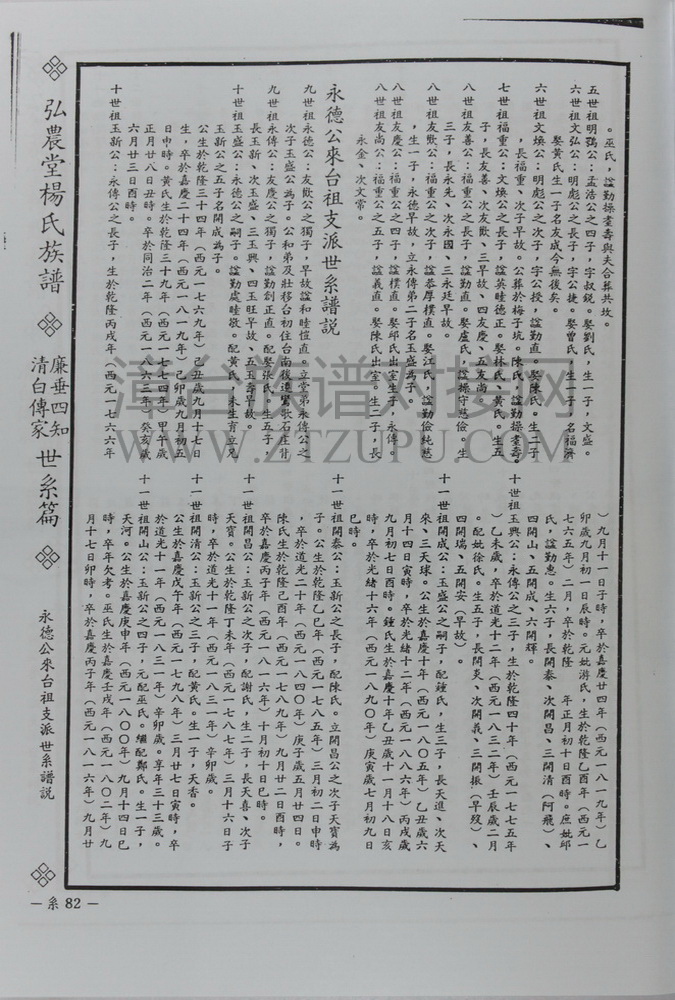 。巫氏,諡勤操耄壽與夫合葬共坟。
五世祖明鸮公:孟浩公之四子,字叔銳。娶劉氏,生一子,文盛。
六世祖文弘公:明彪公之長子,字公捷。娶曾氏,生一子,名福濟
娶黃氏生一子名友成今無後矣。
六世祖文煥公:明彪公之次子,字公授,諡勤直。娶陳氏。生二子
,長福重、次子早故。公葬於梅子坑。陳氏,諡勤操耄壽。
七世祖福重公:文煥公之長子,諡英睦德正。娶林氏、黃氏。生五
子,長友善、次友歎、三早故、四友慶、五友尚。
八世祖友善公:福重公之長子,諡勤直。娶盧氏,諡操守慈儉。生
三子,長永先、次永國、三永廷早故。
八世祖友歎公:福重公之次子,諡恭厚樸直。娶江氏,諡勤儉純慈
,生一子,永德早故,立永傳弟二子名玉盛為子。
八世祖友慶公:福重公之四子,諡樸直。娶邱氏出室生子,永傳。
八世祖友尚公:福重公之五子,諡義直。娶陳氏出室。生二子,長
永金、次文常。
永德公來台祖支派世系譜說
九世祖永德公:友歎公之獨子,早故諡和睦愷直。立堂弟永傳公之
次子玉盛公為子。公和弟及壯移台初住台南後遷鶯歌石庄背
九世祖永傳公:友慶公之獨子,諡勤創正直。配娶張氏,生五子,
長玉新、次玉盛、三玉興、四玉旺早故、五玉壽早故。
十世祖玉盛公:永德公之嗣子。諡勤處睦嶶。配黃氏。未生育立兄
玉新公之五子名開成為子。
公生於乾隆三十四年(西元一七六九年)己丑歲九月十七日
生,卒於嘉慶二十四年(西元一八一九年)己卯歲九月初五
日申時。黃氏生於乾隆三十九年(西元一七七四年)甲午歲
正月廿八日丑時。卒於同治二年(西元一八六三年)癸亥歲
六月廿三日酉時。
十世祖玉新公:永傳公之長子,生於乾隆丙戌年(西元一七六六年
)九月十一日子時,卒於嘉慶廿四年(西元一八一九年)乙
卯歲九月初一日辰時。元妣游氏,生於乾隆乙酉年(西元一
七六五年)二月,卒於乾隆 年正月初十日酉時。庶妣邱
氏,諡勤惠。生六子,長開泰、次開昌、三開清(阿飛)、
四開山、五開成、六開輝。
十世祖玉興公:永傳公之三子,生於乾隆四十年(西元一七七五年
)乙未歲,卒於道光十二年(西元一八三二年)壬辰歲二月
。配妣徐氏。生五子,長開炎、次開義、三開振(早歿)、
四開瑞、五開安(早故)。
十一世祖開成公:玉盛公之嗣子,配鍾氏,生三子,長天進、次天
來、三天球。公生於嘉慶十年(西元一八〇五年)乙丑歲六
月十四日寅時,卒於光緒十二年(西元一八八六年)丙戌歲
九月初七日酉時。鍾氏生於嘉慶十年乙丑歲十一月十八日亥
時,卒於光緒十六年(西元一八九〇年)庚寅歲七月初九日
巳時。
十一世祖開泰公:玉新公之長子,配陳氏。立開昌公之次子天寶為
子。公生於乾隆乙巳年(西元一七八五年)三月初二日申時
,卒於道光二十年(西元一八四〇年)庚子歲五月廿四日。
陳氏生於乾隆己酉年(西元一七八九年)九月廿二日酉時,
卒於嘉慶丙子年(西元一八一六年)十月初十日巳時。
十一世祖開昌公:玉新公之次子,配謝氏,生二子,長天喜、次子
天寶。公生於乾隆丁未年(西元一七八七年)三月十六日子
時,卒於道光十一年(西元一八三一年)辛卯歲。
十一世祖開清公:玉新公之三子,配黃氏。生一子,天香。
公生於嘉慶戊午年(西元一七九八年)三月廿七日寅時,卒
於道光十一年(西元一八三一年)辛卯歲。享年三十三歲。
十一世祖開山公:玉新公之四子,元配巫氏。繼配鄭氏。生一子,
天河。公生於嘉慶庚申年(西元一八〇〇年)九月十四日巳
時,卒年欠考。巫氏生於嘉慶壬戌年(西元一八〇二年)九
月十七日卯時,卒於嘉慶丙子年(西元一八一六年)九月廿
弘農堂楊氏族譜
廉垂四知
清白傳家
世系篇
永德公來台祖支派世系譜說
─系 82─
漳台族谱对接网
WWW.ZTZUPU.COM